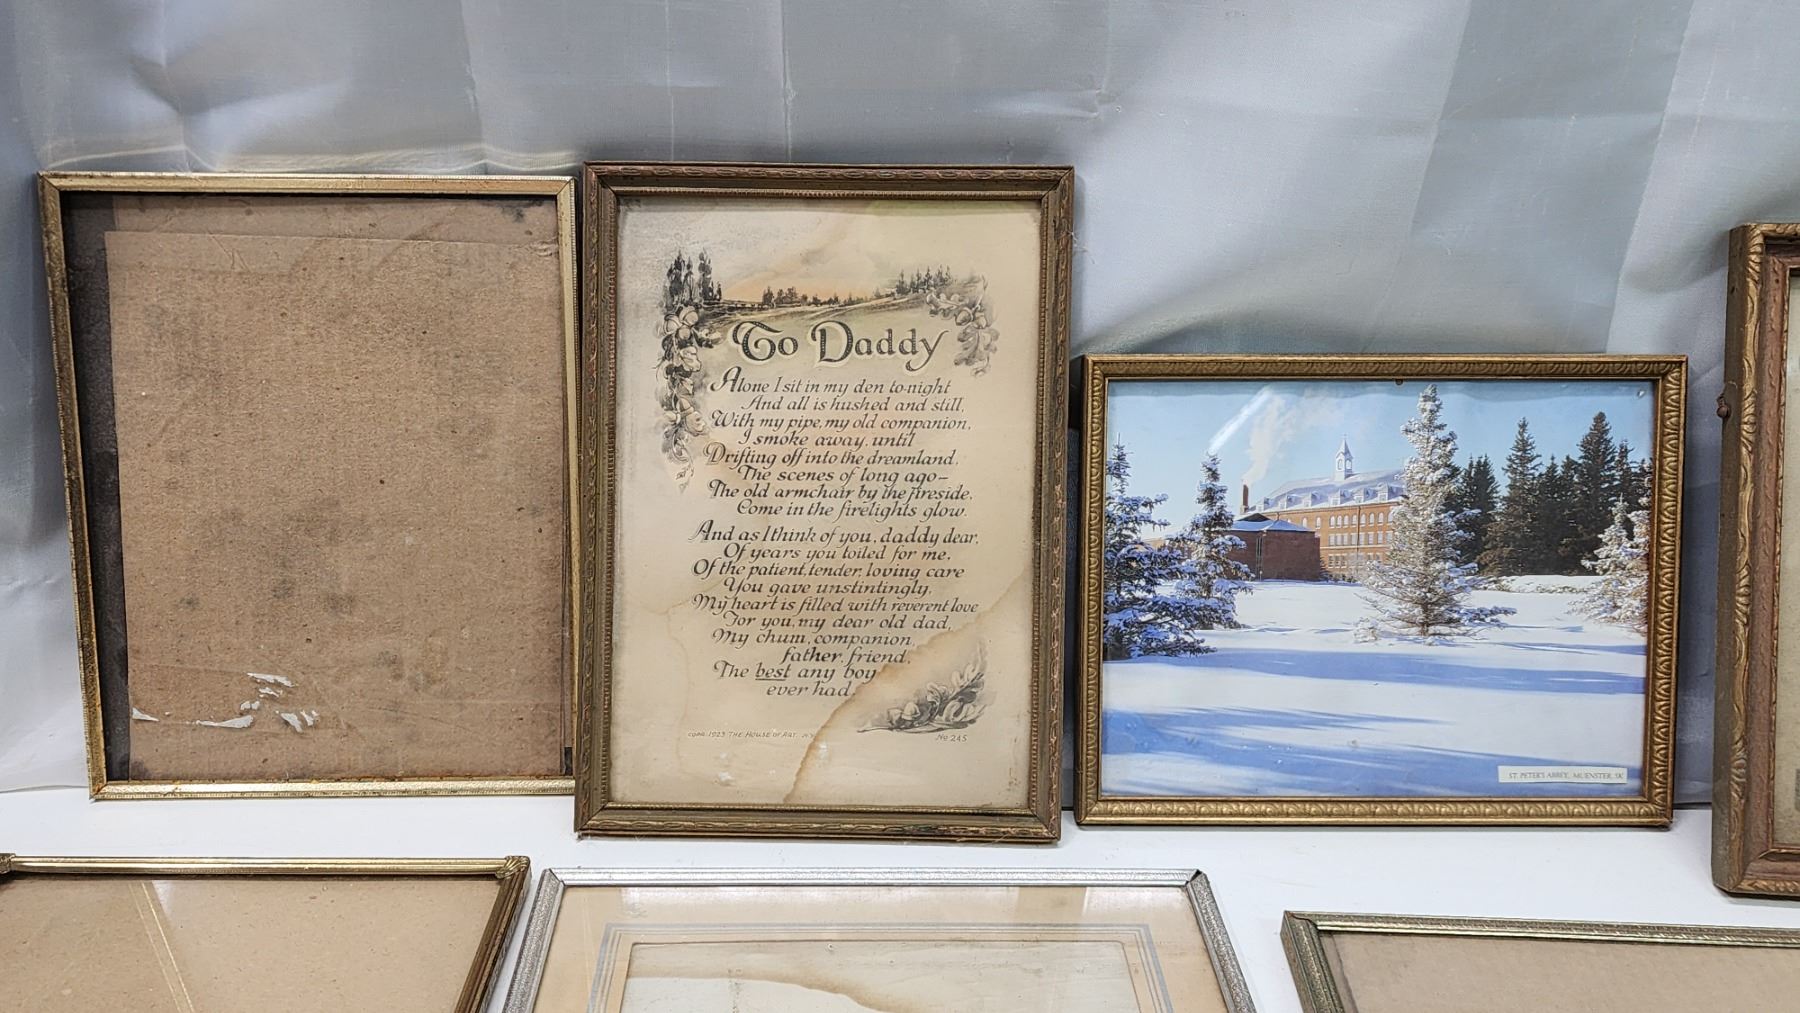 To Daddy
Alone I sit in my den to-night
And all is hushed and still,
With my pipe, my old companion,
I smoke away, until
Drifting off into the dreamland,
The scenes of long ago—
The old armchair by the fireside,
Come in the firelights glow.
And as I think of you, daddy dear,
Of years you toiled for me,
Of the patient, tender, loving care
You gave unstintingly,
My heart is filled with reverent love
For you, my dear old dad,
My chum, companion,
father, friend,
The best any boy
ever had.
COPR. 1923 THE HOUSE OF ART. N.Y.
No 245
ST. PETER'S ABBEY, MUENSTER, SK